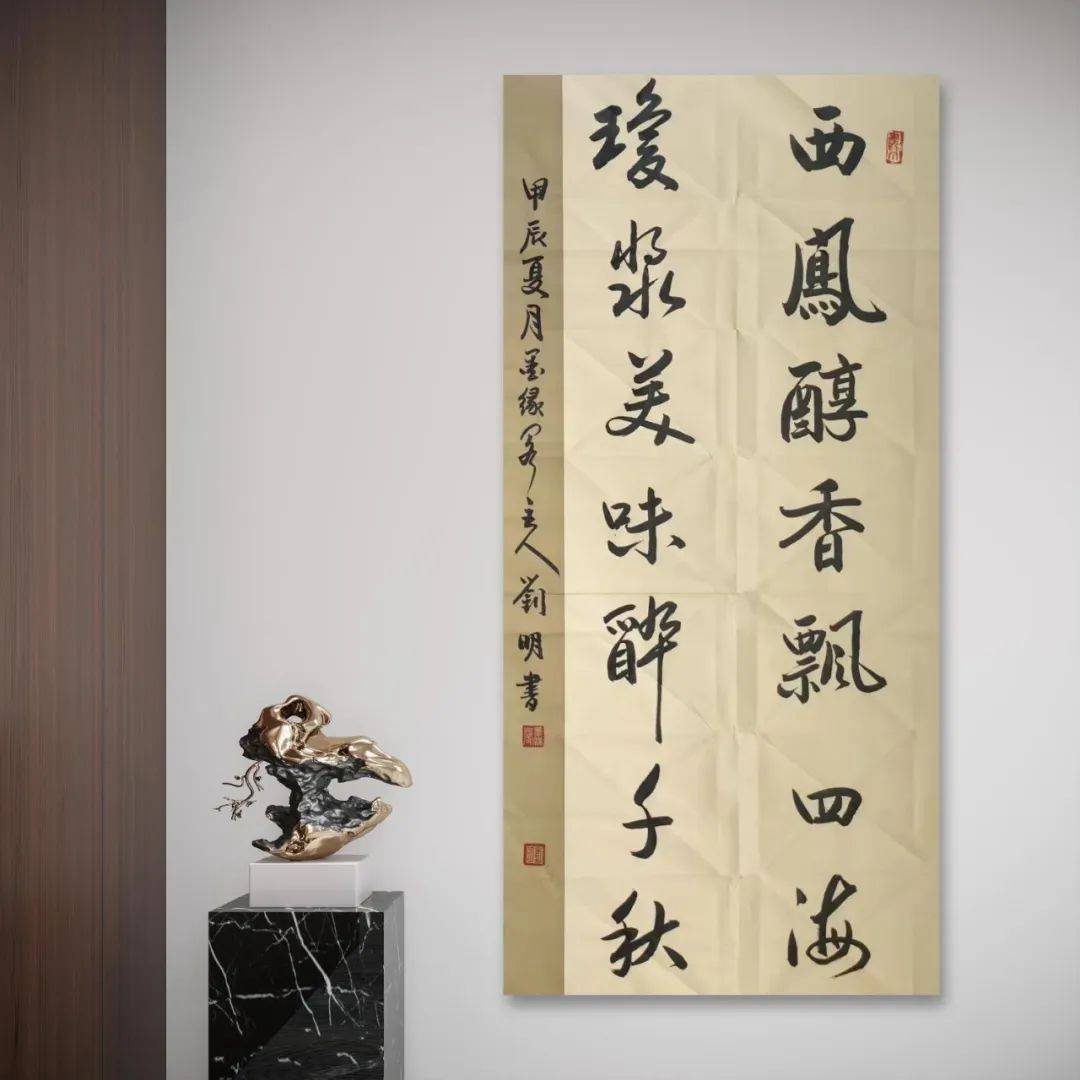 西鳳醇香飄四海
瓊漿美味醉千秋
甲辰夏月墨緣閣主人劉明書